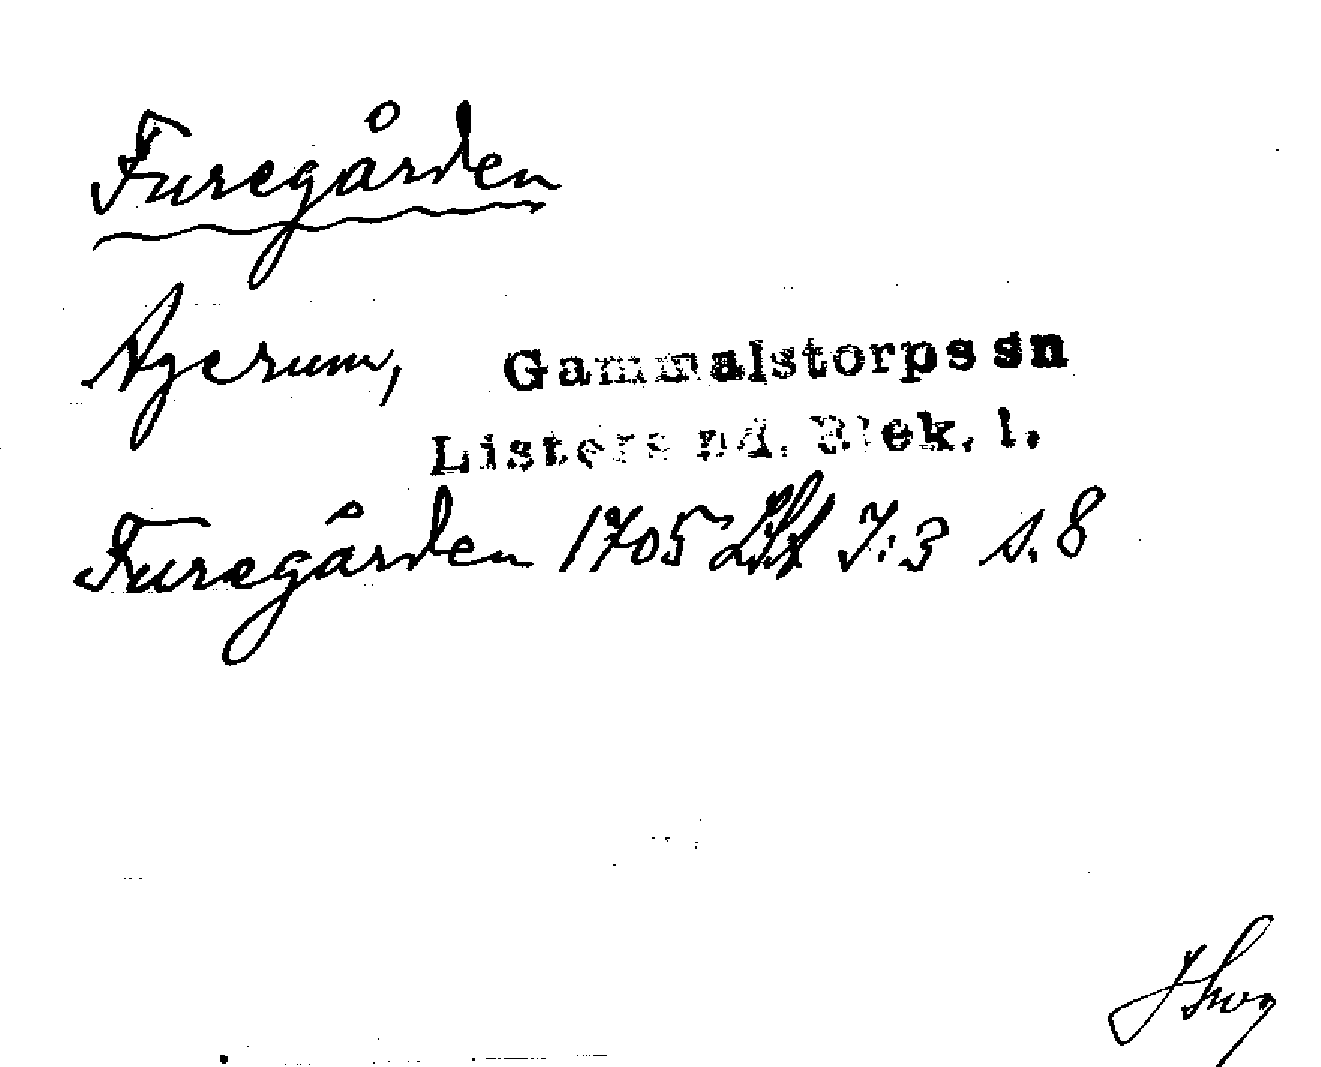 Furegården
Agerum, Gammalstorps sn
Listers hd. Blek. l.
Furegården 1705 I:3 s. 8